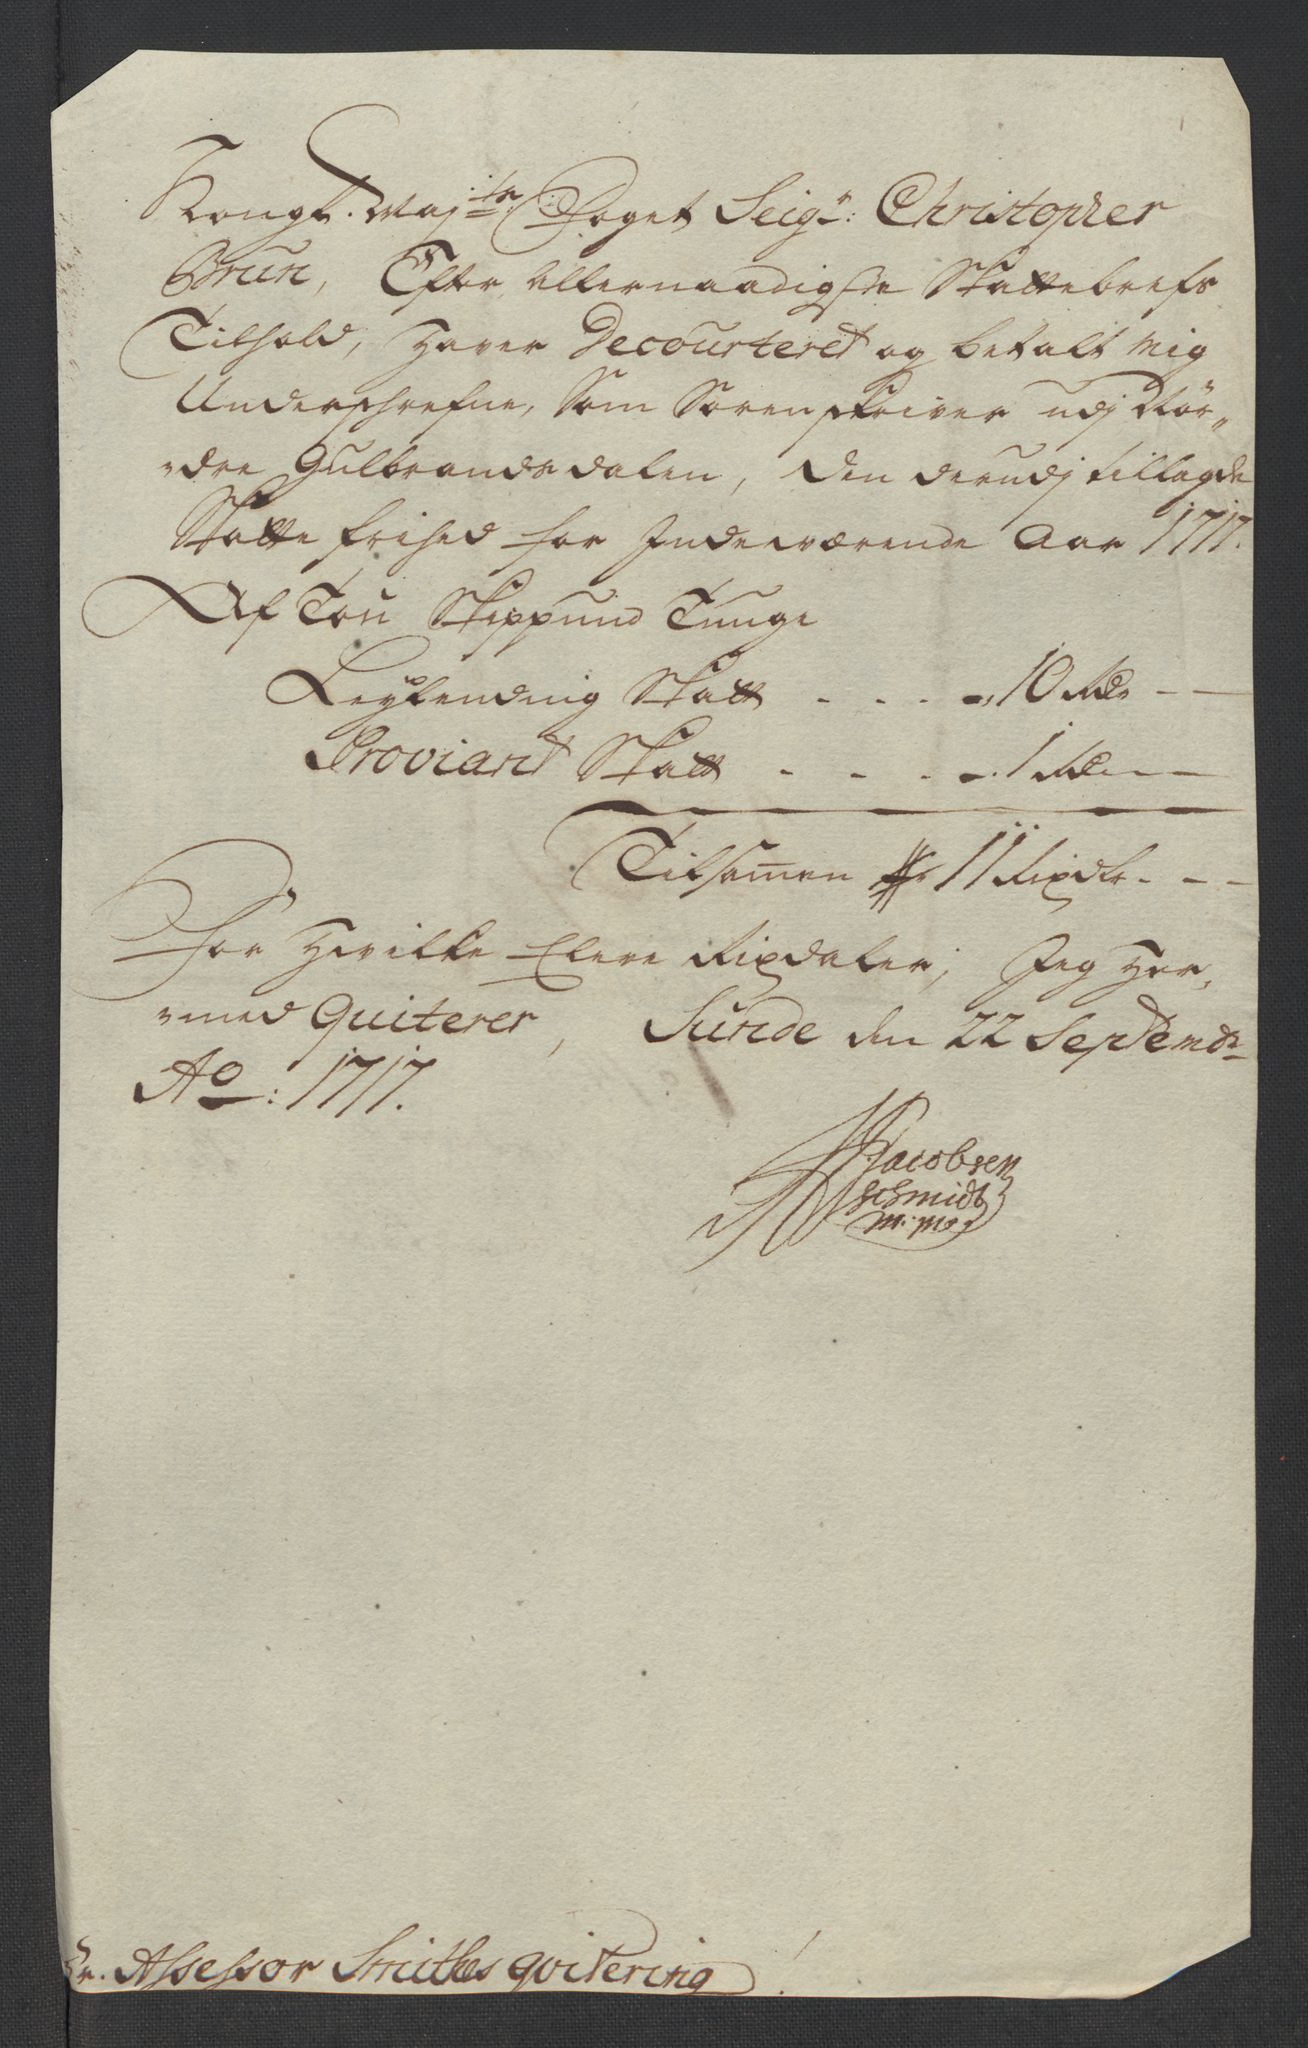 Kongl. Maj:ts Foget Seigr: Christopher
Brun, Efter Allernaadigste Skattebrefs
Tilhold, Hafver Decourteret og betalt mig
Underschrefne, Som Sorenskriver udj Nör„
„dre Gulbrandsdalen, Den derudj tillagde
Skatte frihed for Indeværende Aar 1717.
Af Tou Skippund Tunge
Leylending Skatt . . . . . 10 Rdr - -
Proviant Skatt . . . . . 1 Rdr - -
Tilsamen er 11 Rixdlr - - -
For Hvilke Elleve Rixdaler, Jeg Her„
„med Quiterer, Sunde den 22 Septembr
Ao: 1717.
Jacobsen
Schmidt
m: mp
Hr. Assessor Smithes qvitering